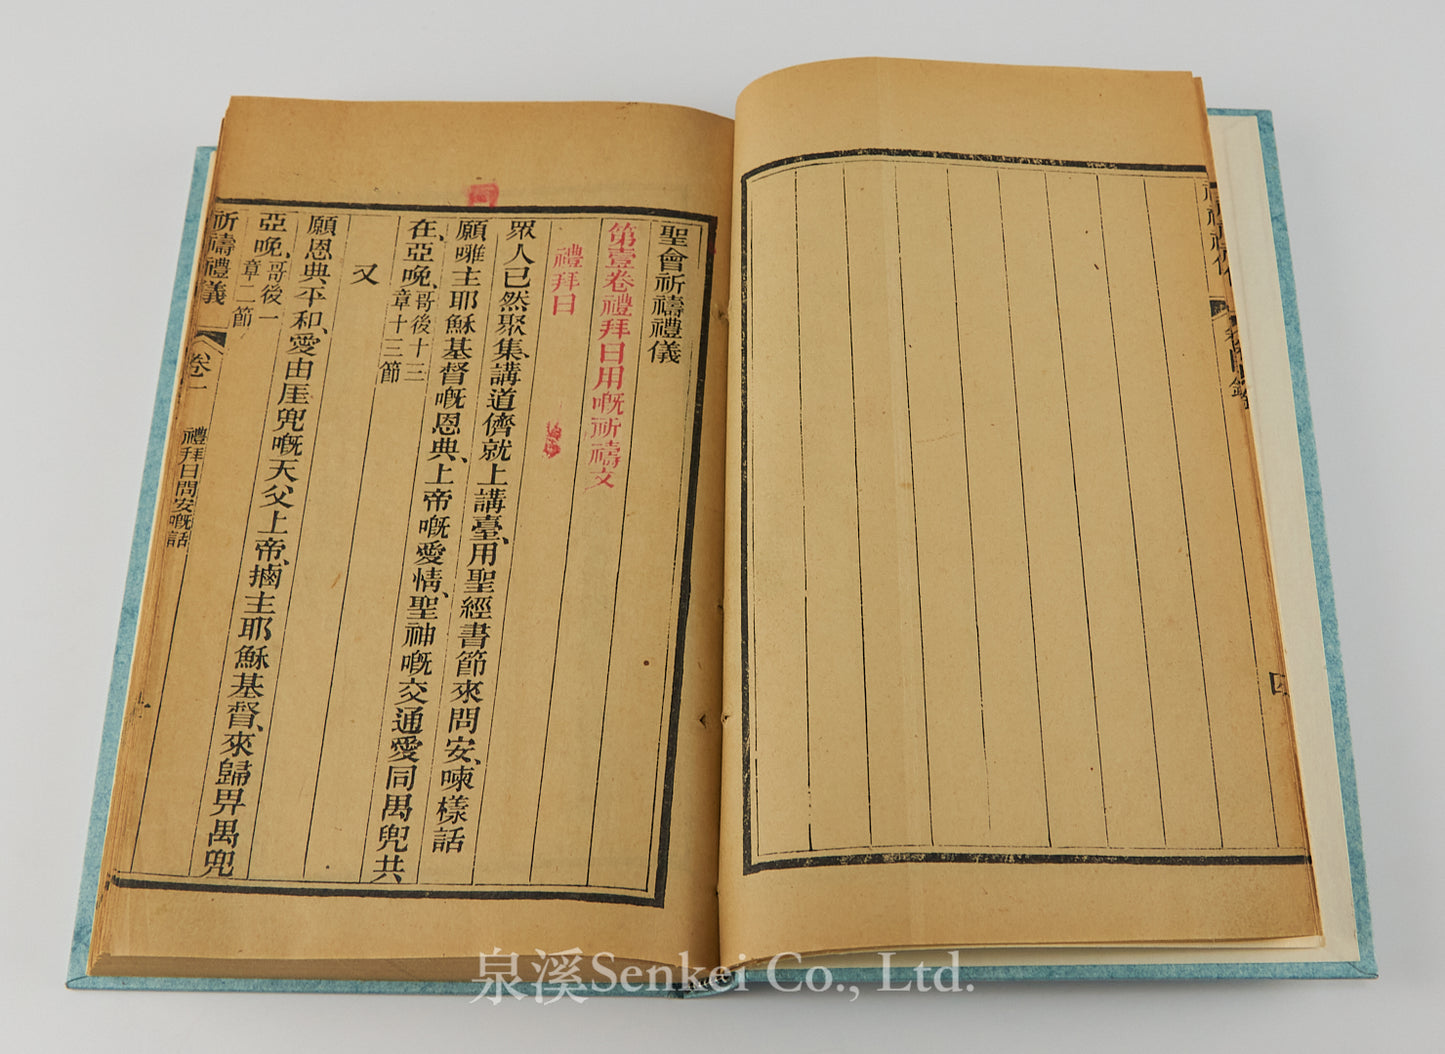 聖會祈禱禮儀
第壹卷禮拜日用嘅祈禱文
禮拜日
眾人已然聚集、講道儕就上講臺、用聖經書節來問安、㖠樣話
願𠊎主耶穌基督嘅恩典、上帝嘅愛情、聖神嘅交通愛同禺兜共
在、亞晚、哥後十三
章十三節
又
願恩典平和、愛由厓兜嘅天父上帝、㨴主耶穌基督、來歸畀禺兜
亞晚、哥後一
章二節
祈禱禮儀
卷一
禮拜日問安嘅話
四
泉溪Senkei Co., Ltd.